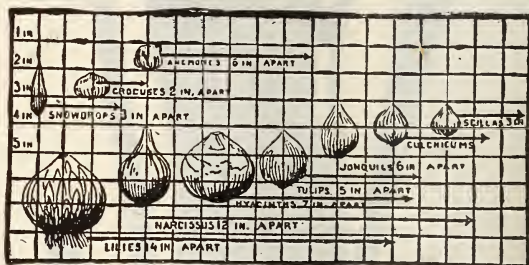 1 IN
2 IN
ANEMONES 6 IN APART
3 IN
CROCUSES 2 IN. APART
4 IN
SNOWDROPS 3 IN APART
SCILLAS 3 IN
CULCHICUMS
5 IN
JONQUILS 6 IN APART
TULIPS. 5 IN APART
HYACINTHS 7 IN. APART
NARCISSUS 12 IN. APART
LILIES 14 IN APART